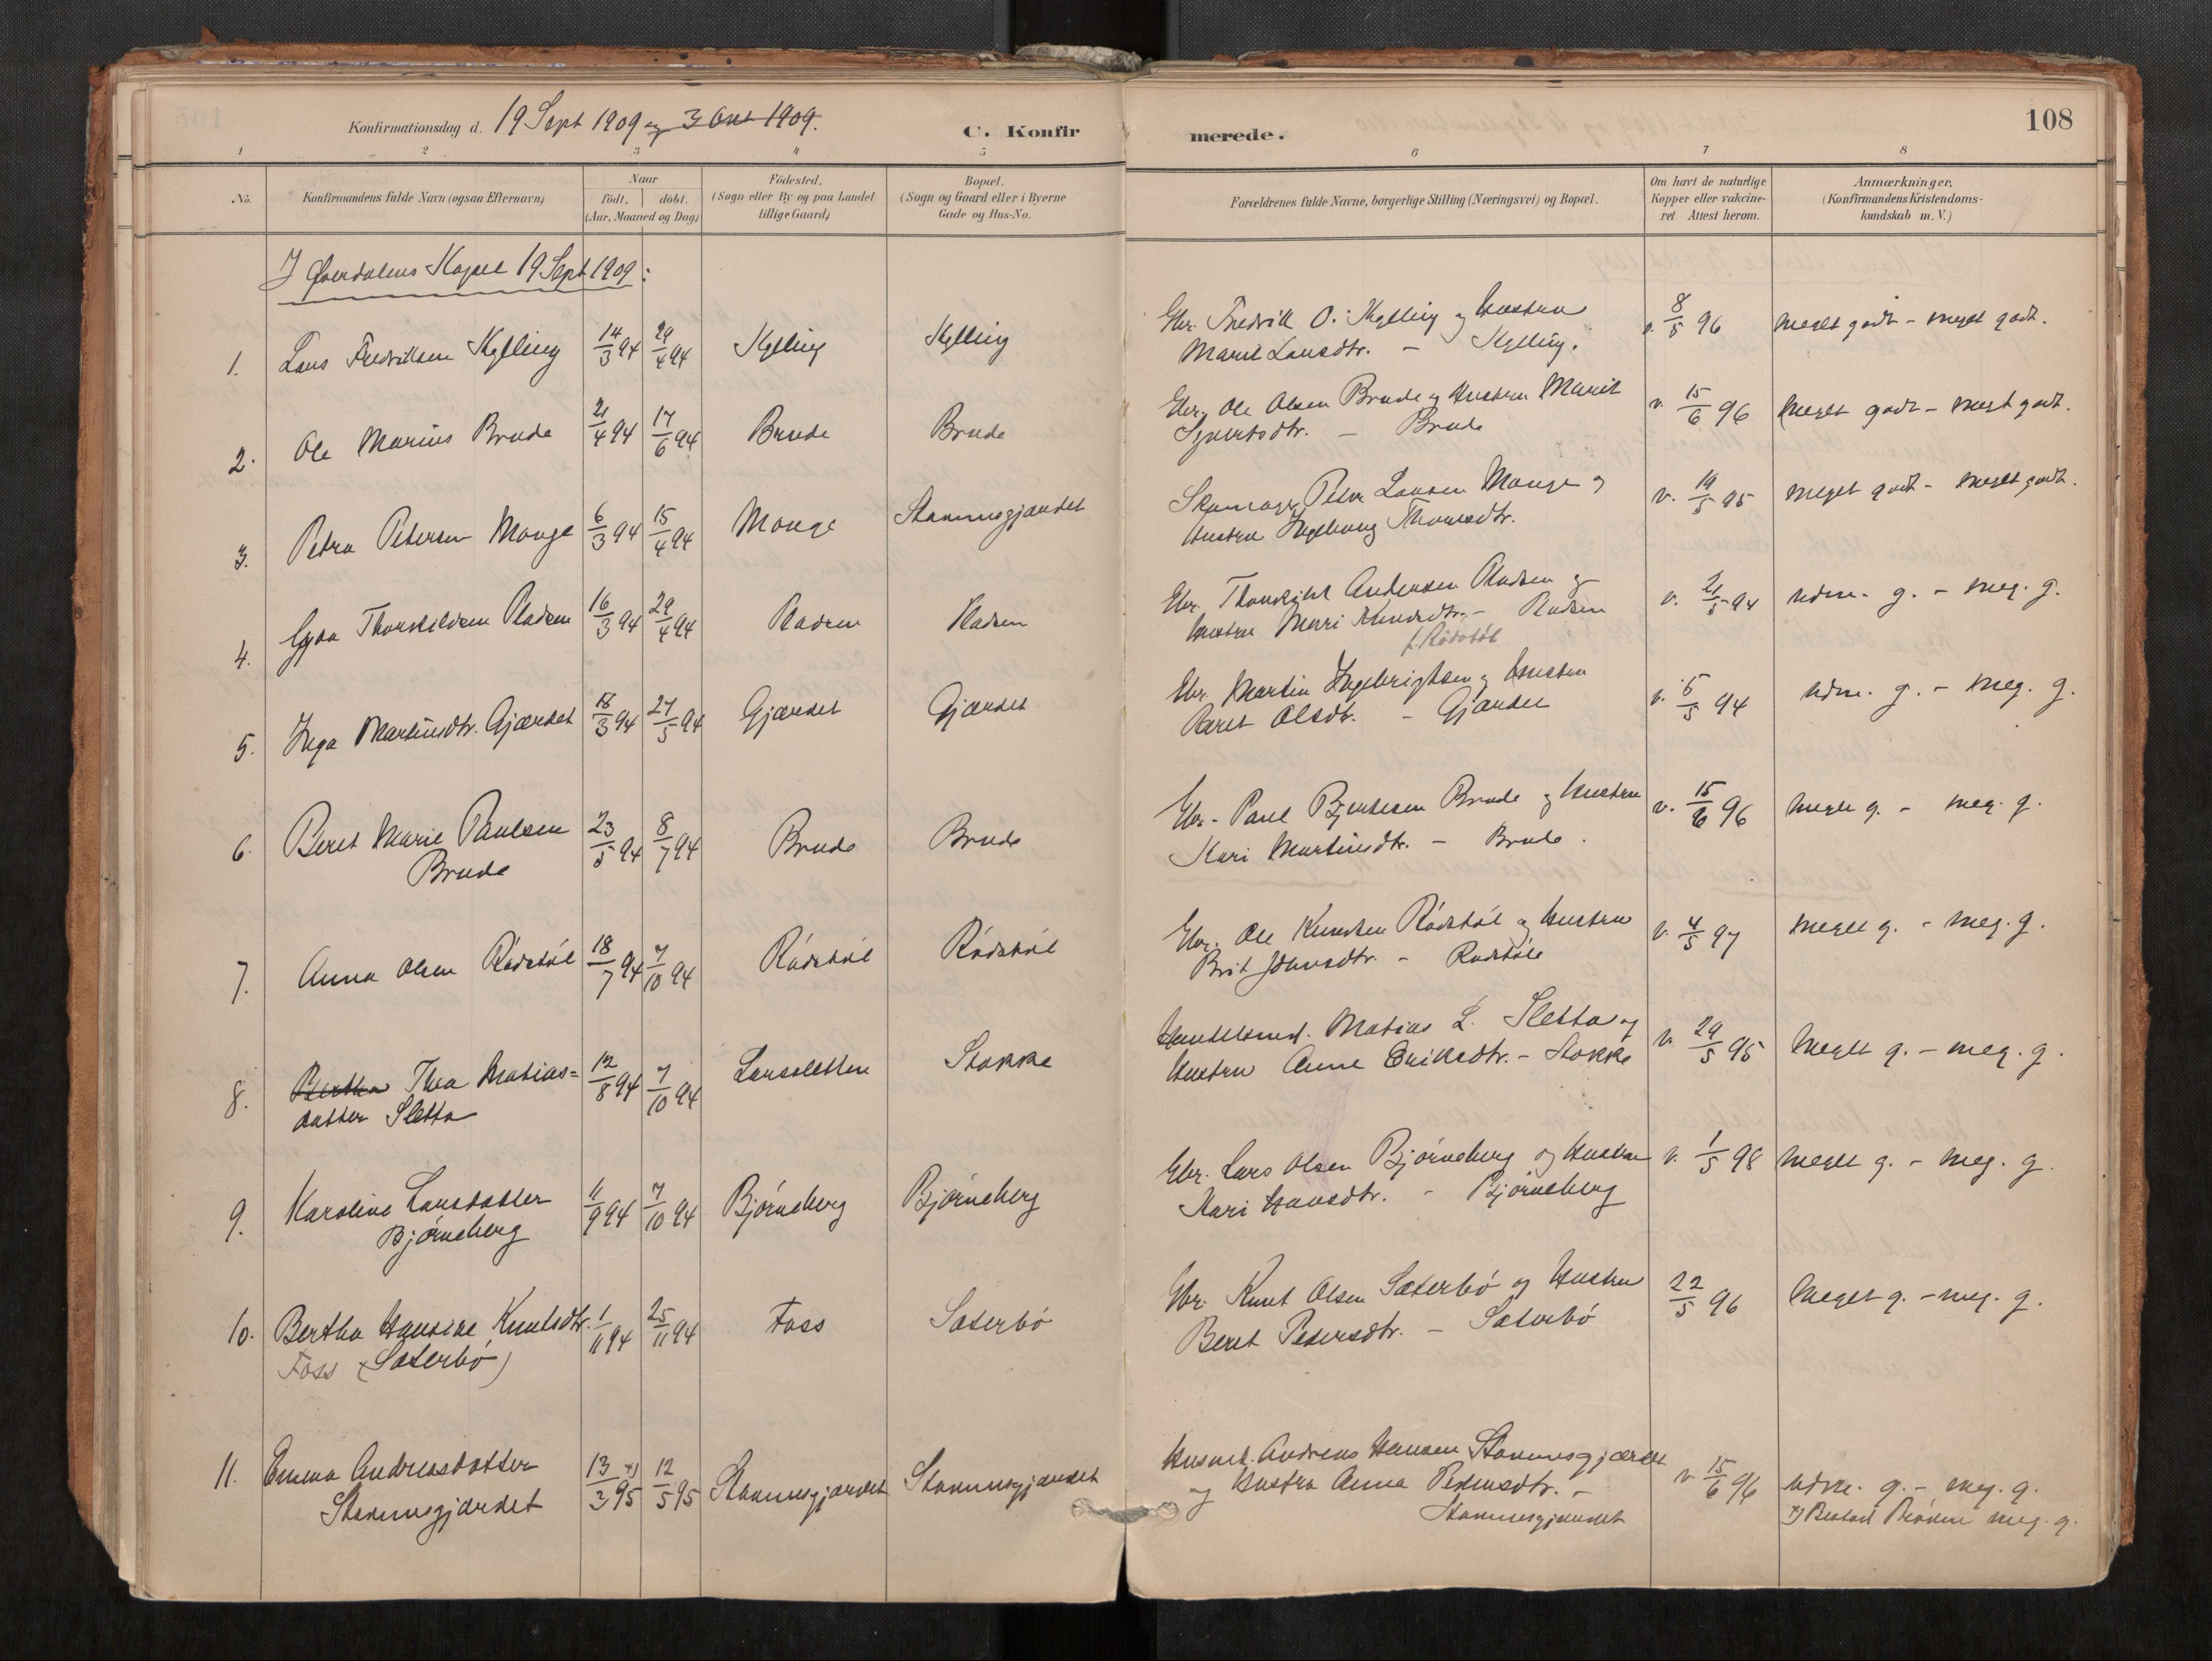 Konfirmationsdag d. 19 Sept 1909 og 3 Okt 1909.
C. Konfirmerede.
108
1 2 3 4 5 6 7 8
No.
Konfirmandens fulde Navn (ogsaa Efternavn)
Naar
födt. döbt.
(Aar, Maaned og Dag)
Födested.
(Sogn eller By og paa Landet
tillige Gaard)
Bopæl.
(Sogn og Gaard eller i Byerne
Gade og Hus-No.
Forældrenes fulde Navne, borgerlige Stilling (Næringsvei) og Bopæl.
Om havt de naturlige
Kopper eller vakcine-
ret Attest herom.
Anmærkninger,
(Konfirmandens Kristendoms-
kundskab m. V.)
I Øverdalens Kapel 19 Sept 1909:
1. Lars Fredriksen Kylling 14/3 94 29/4 94 Kylling Kylling
Gbr. Fredrik O. Kylling og Hustru
Marit Larsdtr. - Kylling.
v. 8/5 96 meget godt - meget godt.
2. Ole Marius Brude 21/4 94 17/6 94 Brude Brude
Gbr. Ole Olsen Brude og Hustru Marit
Syvertsdtr. - Brude
v. 15/6 96 meget godt - meget godt.
3. Petra Petersen Monge 6/3 94 15/4 94 Monge Stavnesgjærdet
Skomager Peter Larsen Monge og
Hustru Ingeborg Thomasdtr.
v. 19/5 95 meget godt - meget godt.
4. Gyda Thorkildsen Pladsen 16/3 94 29/4 94 Pladsen Pladsen
Gbr. Thorkild Andersen Pladsen og
Hustru Mari Knudsdtr. - Pladsen
f. Rödstöl
v. 21/5 94 udm. g. - meg. g.
5. Inga Martinsdtr. Gjærdet 18/3 94 27/5 94 Gjærdet Gjærdet
Gbr. Martin Ingebrigtsen og Hustru
Beret Olsdtr. - Gjærdet
v. 5/5 94 udm. g. - meg. g.
6. Beret Marie Paulsen 23/5 94 8/7 94 Brude Brude
Brude
Gbr. Paul Brude og Hustru
Kari Martinsdtr. - Brude.
v. 15/6 96 meget g. - meg. g.
7. Anna Olsen Rödstöl 18/7 94 7/10 94 Rödstöl Rödstöl
Gbr. Ole Knudsen Rödstöl og Hustru
Brit Johnsdtr. - Rödstöl
v. 4/5 97 meget g. - meg. g.
8. Bertha Thea Matias= 12/8 94 7/10 94 Larssletten Stokke
datter Sletta
Handelsmd. Matias L. Sletta og
Hustru Anne Eriksdtr. - Stokke
v. 29/5 95 meget g. - meg. g.
9. Karoline Larsdatter 11/9 94 7/10 94 Björneberg Björneberg
Björneberg
Gbr. Lars Olsen Björneberg og Hustru
Kari Hansdtr. - Björneberg
v. 1/5 98 meget g. - meg. g.
10. Bertha Hansine Knutsdtr. 1/11 94 25/11 94 Foss Sæterbö
Foss (Sæterbö)
Gbr. Knut Olsen Sæterbö og Hustru
Beret Pedersdtr. - Sæterbö
22/5 96 meget g. - meg. g.
11. Emma Andreasdatter 13/3 95 x) 12/5 95 Stavnesgjærdet Stavnesgjærdet
Stavnesgjærdet
Husmd. Andreas Hansen Stavnesgjærdet
og Hustru Anna Pedersdtr. -
Stavnesgjærdet
v. 15/6 96 udm. g. - meg. g.
x) Bestod Pröven meg. g.